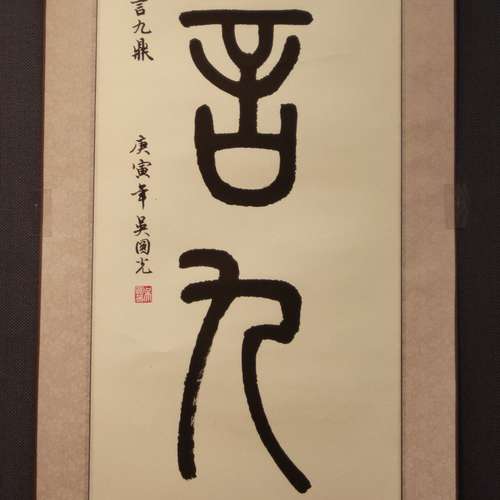 言九
言九鼎
庚寅年吴國光